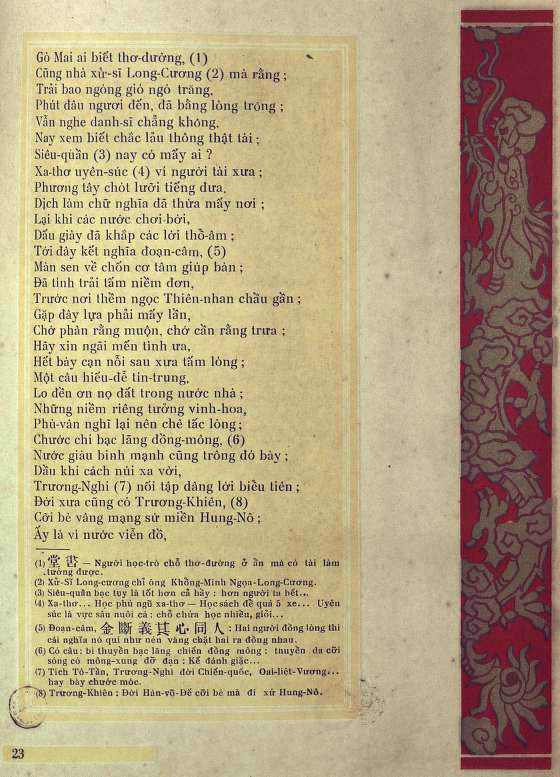 Gò Mai ai biết thơ-đường, (1)
Cũng nhà xử-sĩ Long-Cương (2) mà rằng ;
Trải bao ngóng gió ngó trăng,
Phút đâu ngươi đến, đã bằng lòng trông ;
Vẫn nghe danh-sĩ chẳng không,
Nay xem biết chắc lầu thông thật tài ;
Siêu-quần (3) nay có mấy ai ?
Xa-thơ uyên-súc (4) ví người tài xưa ;
Phương tây chót lưỡi tiếng đưa,
Dịch làm chữ nghĩa đã thừa mấy nơi ;
Lại khi các nước chơi-bời,
Dấu giày đã khắp các lời thổ-âm ;
Tới đây kết nghĩa đoạn-câm, (5)
Màn sen về chốn cơ tâm giúp bàn ;
Đã tình trải tấm niềm đơn,
Trước nơi thềm ngọc Thiên-nhan chầu gần ;
Gặp đây lựa phải mấy lần,
Chớ phàn rằng muộn, chớ cần rằng trưa ;
Hãy xin ngãi mến tình ưa,
Hết bày cạn nỗi sau xưa tấm lòng ;
Một câu hiếu-đễ tín-trung,
Lo đền ơn nọ đất trong nước nhà ;
Những niềm riêng tưởng vinh-hoa,
Phù-vân nghĩ lại nên chê tấc lòng ;
Chước chi bạc lãng đồng-mông, (6)
Nước giàu binh mạnh cũng trông đó bày ;
Dầu khi cách núi xa vời,
Trương-Nghi (7) nối tập dâng lời biểu tiên ;
Đời xưa cũng có Trương-Khiên, (8)
Cỡi bè vâng mạng sứ miền Hung-Nô ;
Ấy là vì nước viễn đồ,
(1) 堂 書 — Người học-trò chỗ thơ-đường ở ẩn mà có tài làm
tướng được.
(2) Xử-Sĩ Long-cương chỉ ông Khổng-Minh Ngọa-Long-Cương.
(3) Siêu-quần bạc tụy là tốt hơn cả bầy : hơn người ta hết...
(4) Xa-thơ... Học phú ngũ xa-thơ — Học sách để quá 5 xe... Uyên
súc là vực sâu nuôi cá : chỗ chứa học nhiều, giỏi...
(5) Đoạn-câm, 金 斷 義 其 心 同 人 : Hai người đồng lòng thì
cái nghĩa nó quí như nén vàng chặt hai ra đồng nhau.
(6) Có câu : bỉ thuyền bạc lãng chiến đồng mông : thuyền da cỡi
sóng có mông-xung đỡ đạn : Kế đánh giặc...
(7) Tích Tô-Tần, Trương-Nghi đời Chiến-quốc, Oai-liệt-Vương...
hay bày chước móc.
(8) Trương-Khiên : Đời Hán-võ-Đế cỡi bè mà đi xứ Hung-Nô.
23